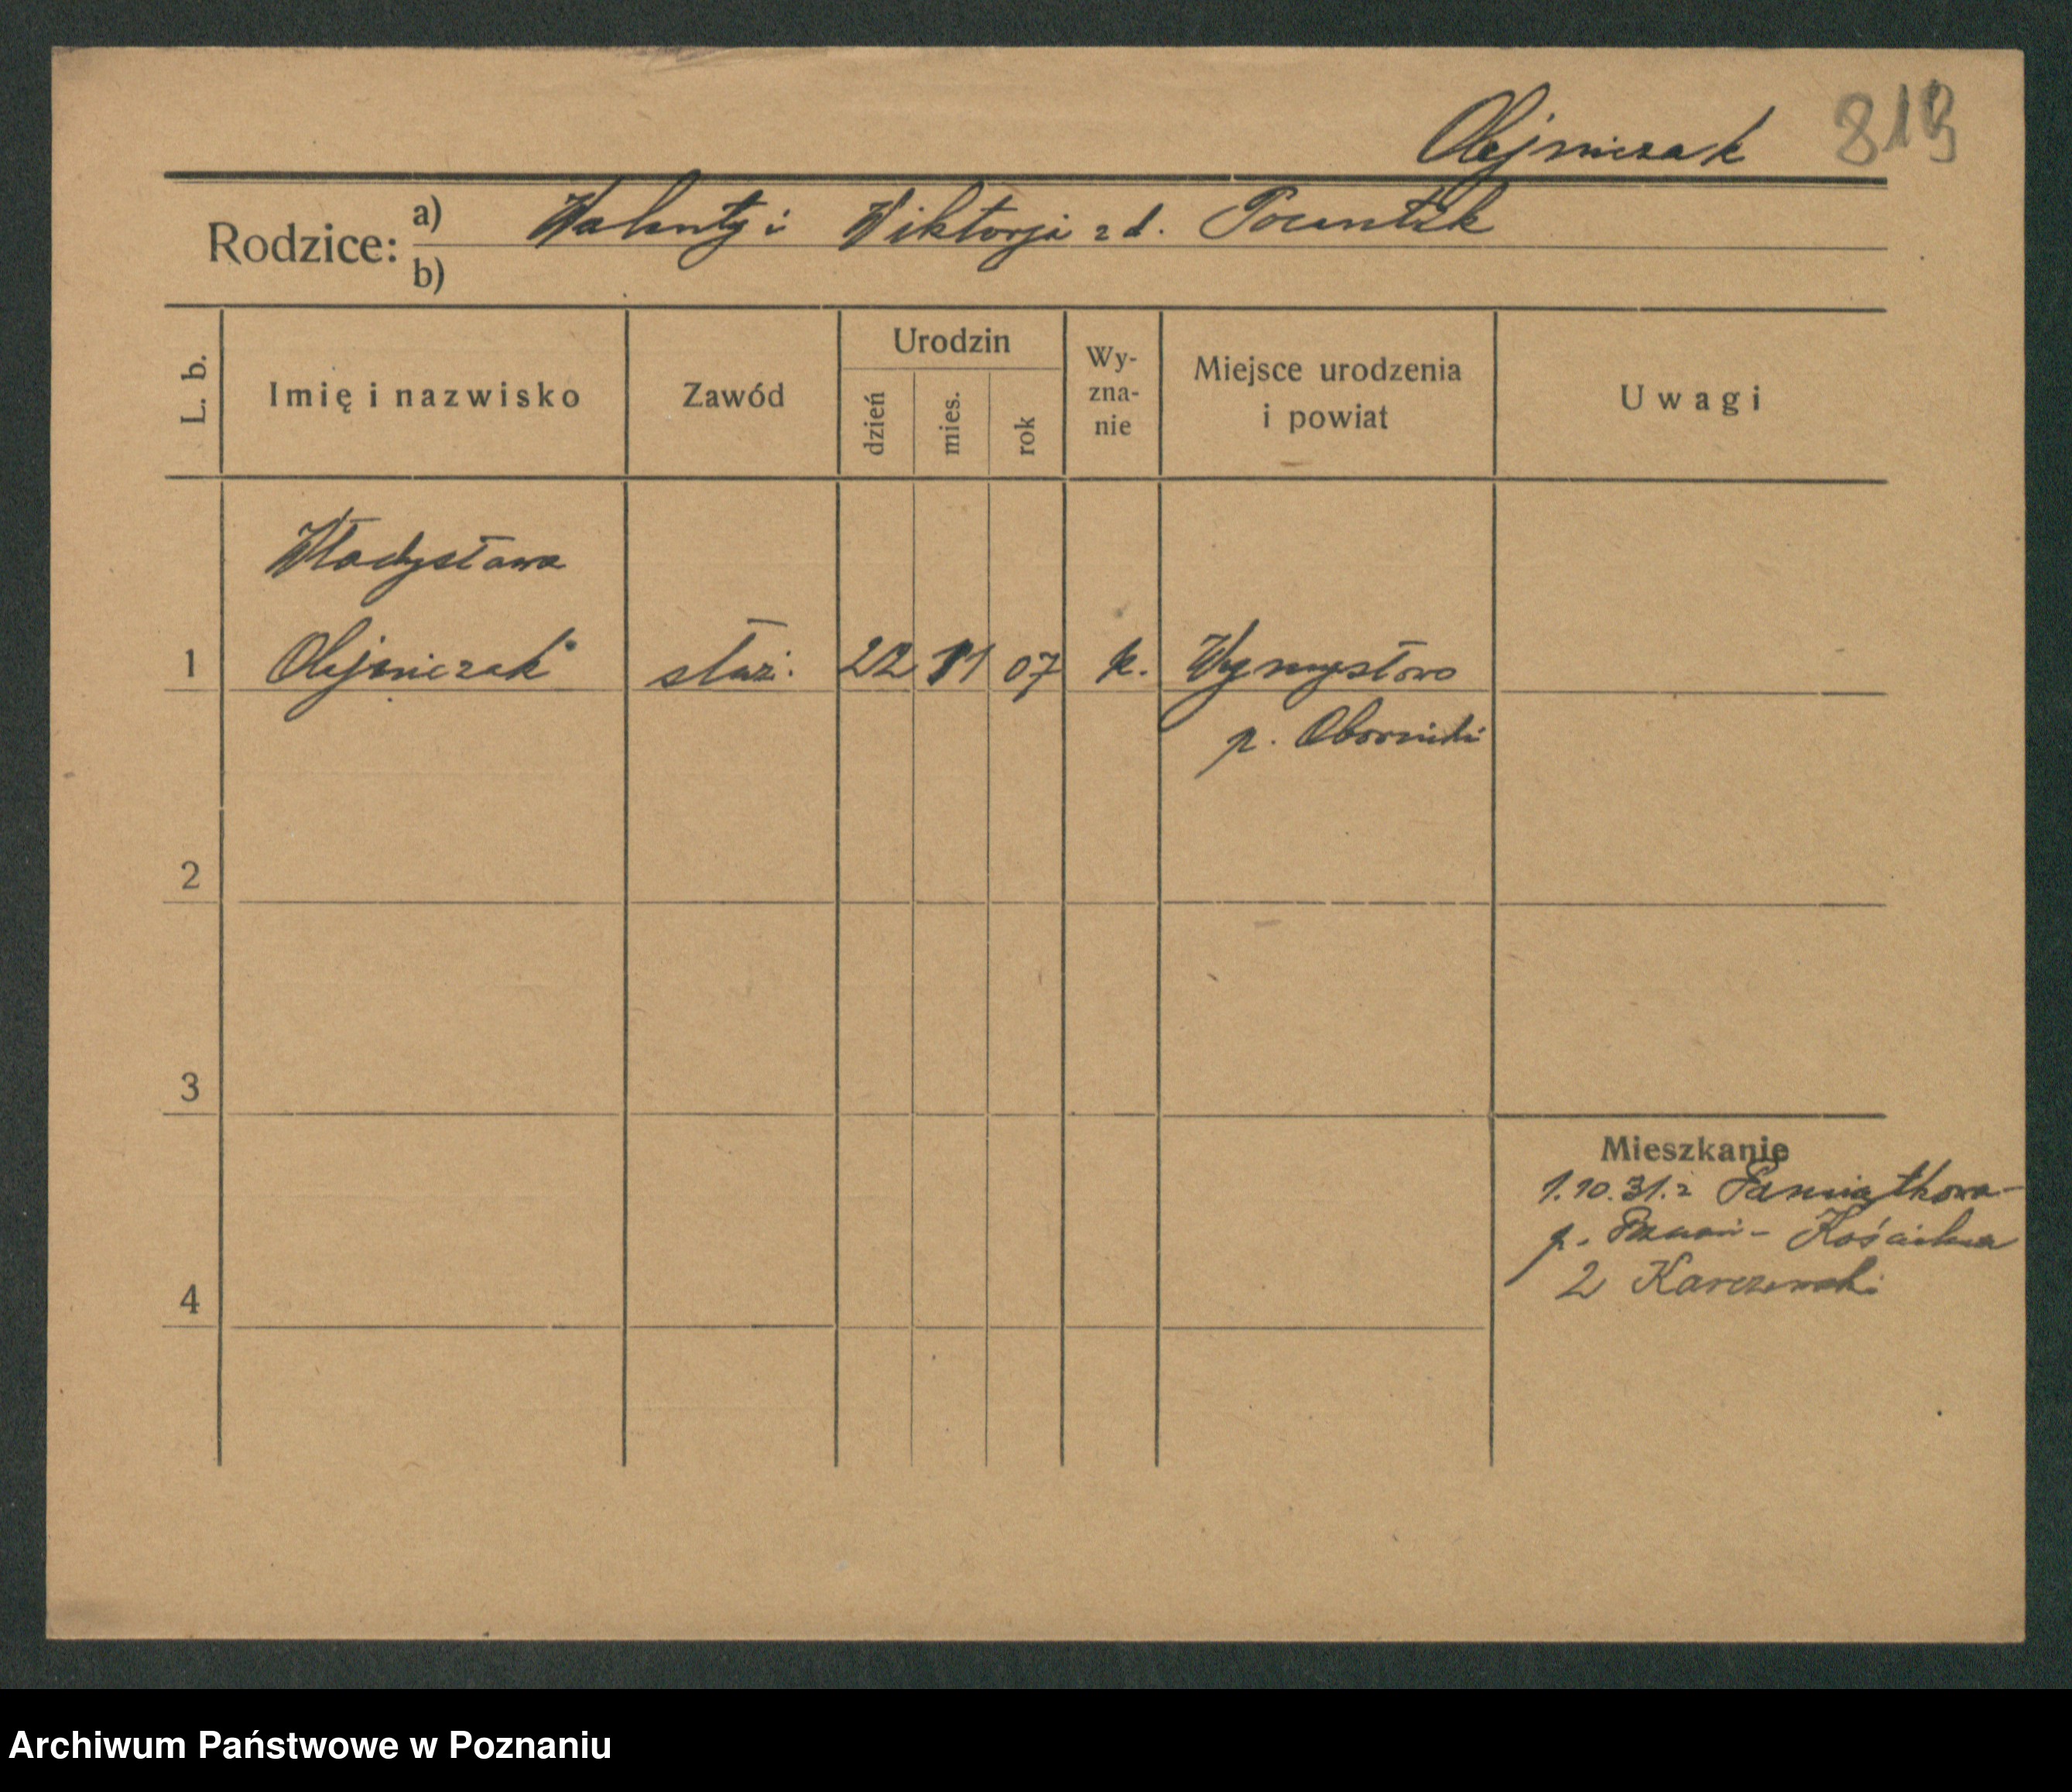 Olejniczak 819
Rodzice: a) Walenty i Wiktorja z d.
b)
L. b.
Imię i nazwisko
Zawód
Urodzin
dzień
mies.
rok
Wy-
zna-
nie
Miejsce urodzenia
i powiat
Uwagi
Władysława
1 Olejniczak służ. 22 11 07 k. Wymysłowo
p. Oborniki
2
3
Mieszkanie
1.10.31. z Pamiątkowa
p. Poznań - Kościelna
4 2 Karczewski
Archiwum Państwowe w Poznaniu